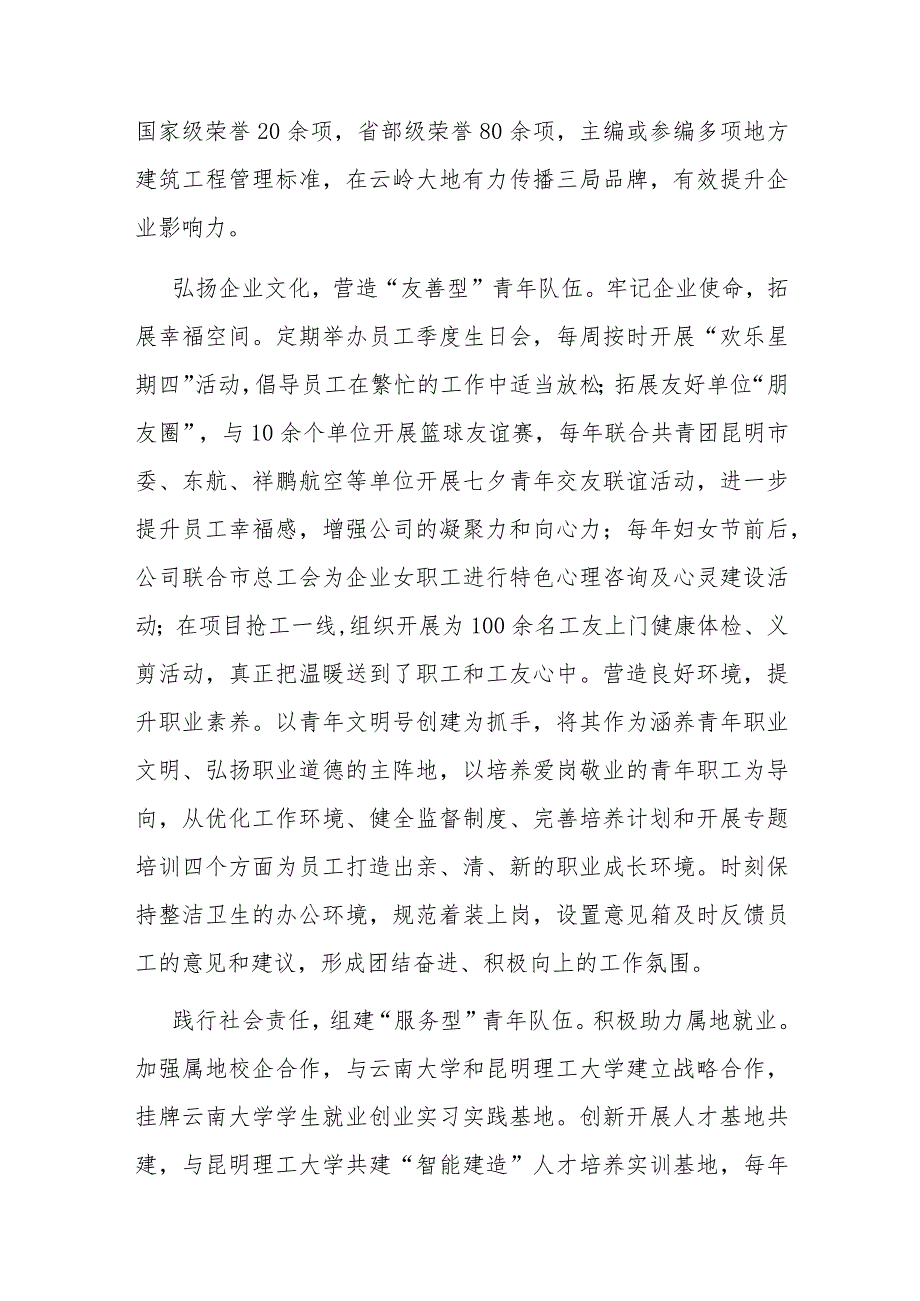 国家级荣誉 20 余项，省部级荣誉 80 余项，主编或参编多项地方
建筑工程管理标准，在云岭大地有力传播三局品牌，有效提升企
业影响力。
弘扬企业文化，营造“友善型”青年队伍。牢记企业使命，拓
展幸福空间。定期举办员工季度生日会，每周按时开展“欢乐星
期四”活动，倡导员工在繁忙的工作中适当放松；拓展友好单位“朋
友圈”，与 10 余个单位开展篮球友谊赛，每年联合共青团昆明市
委、东航、祥鹏航空等单位开展七夕青年交友联谊活动，进一步
提升员工幸福感，增强公司的凝聚力和向心力；每年妇女节前后，
公司联合市总工会为企业女职工进行特色心理咨询及心灵建设活
动；在项目抢工一线,组织开展为 100 余名工友上门健康体检、义
剪活动，真正把温暖送到了职工和工友心中。营造良好环境，提
升职业素养。以青年文明号创建为抓手，将其作为涵养青年职业
文明、弘扬职业道德的主阵地，以培养爱岗敬业的青年职工为导
向，从优化工作环境、健全监督制度、完善培养计划和开展专题
培训四个方面为员工打造出亲、清、新的职业成长环境。时刻保
持整洁卫生的办公环境，规范着装上岗，设置意见箱及时反馈员
工的意见和建议，形成团结奋进、积极向上的工作氛围。
践行社会责任，组建“服务型”青年队伍。积极助力属地就业。
加强属地校企合作，与云南大学和昆明理工大学建立战略合作，
挂牌云南大学学生就业创业实习实践基地。创新开展人才基地共
建，与昆明理工大学共建“智能建造”人才培养实训基地，每年